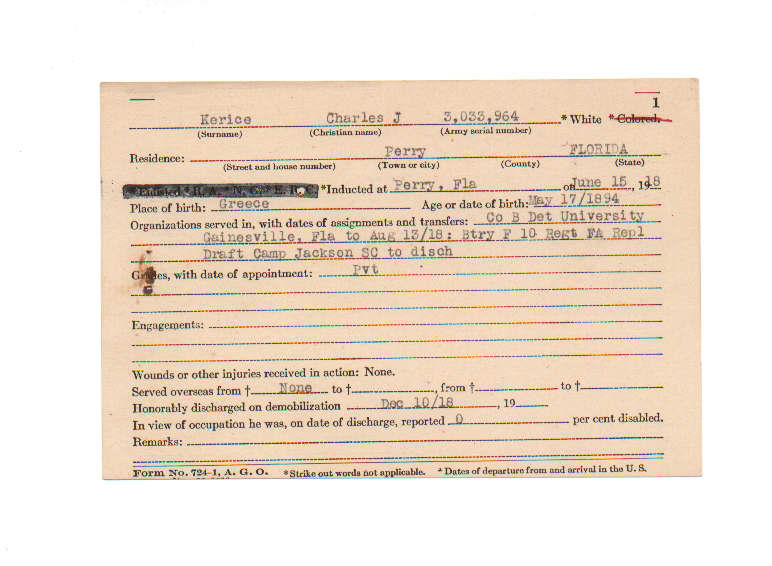 1
Kerice Charles J 3,033,964 * White * Colored.
(Surname) (Christian name) (Army serial number)
Residence: Perry FLORIDA
(Street and house number) (Town or city) (County) (State)
* Enlisted * R. A. * N. G. * E. R. C. *Inducted at Perry, Fla on June 15, 1918
Place of birth: Greece Age or date of birth: May 17/1894
Organizations served in, with dates of assignments and transfers: Co B Det University
Gainesville, Fla to Aug 13/18: Btry F 10 Regt FA Repl
Draft Camp Jackson SC to disch
Grades, with date of appointment: Pvt
Engagements:
Wounds or other injuries received in action: None.
Served overseas from † None to †, from † to †
Honorably discharged on demobilization Dec 10/18, 19
In view of occupation he was, on date of discharge, reported 0 per cent disabled.
Remarks:
Form No. 724-1, A. G. O. *Strike out words not applicable. † Dates of departure from and arrival in the U. S.